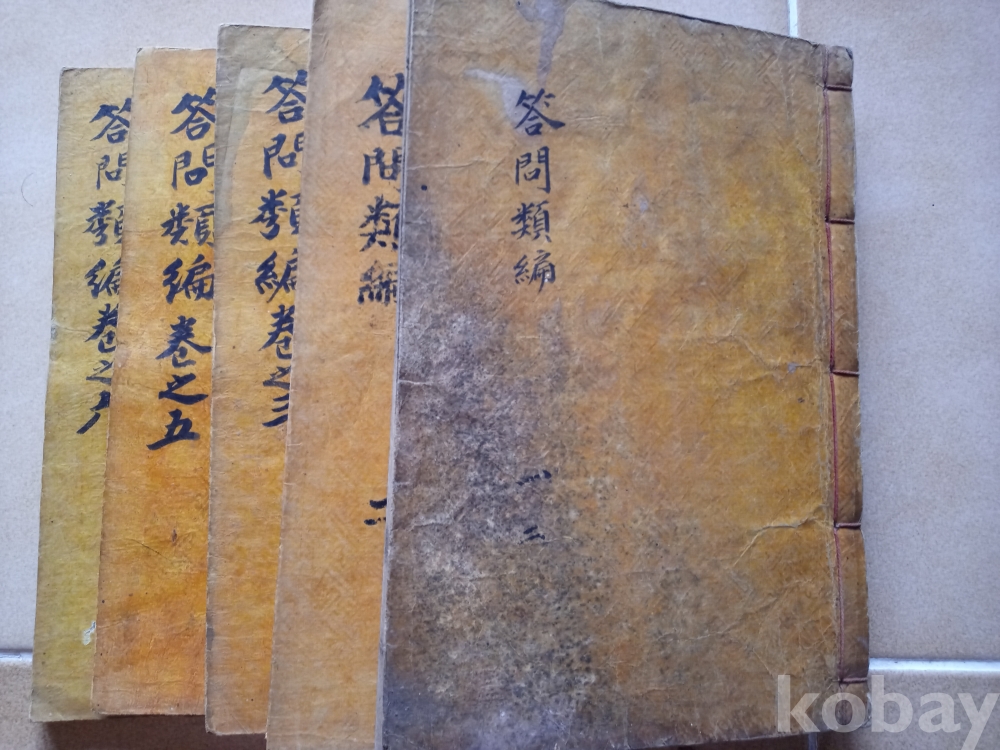 答問類編
一 二
答問類編
二
答問類編卷之三
答問類編卷之五
答問類編卷之六
kobay